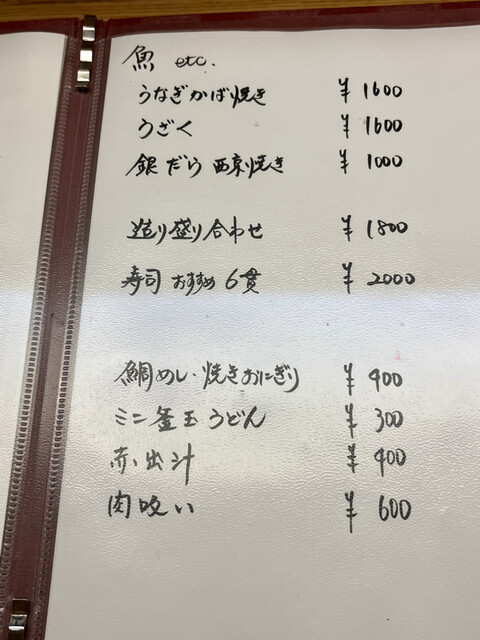 魚 etc.
うなぎかば焼き ¥1600
うざく ¥1600
銀だら西京焼き ¥1000
造り盛り合わせ ¥1800
寿司おすすめ6貫 ¥2000
鯛めし・焼きおにぎり ¥400
ミニ釜玉うどん ¥300
赤出汁 ¥400
肉吸い ¥600